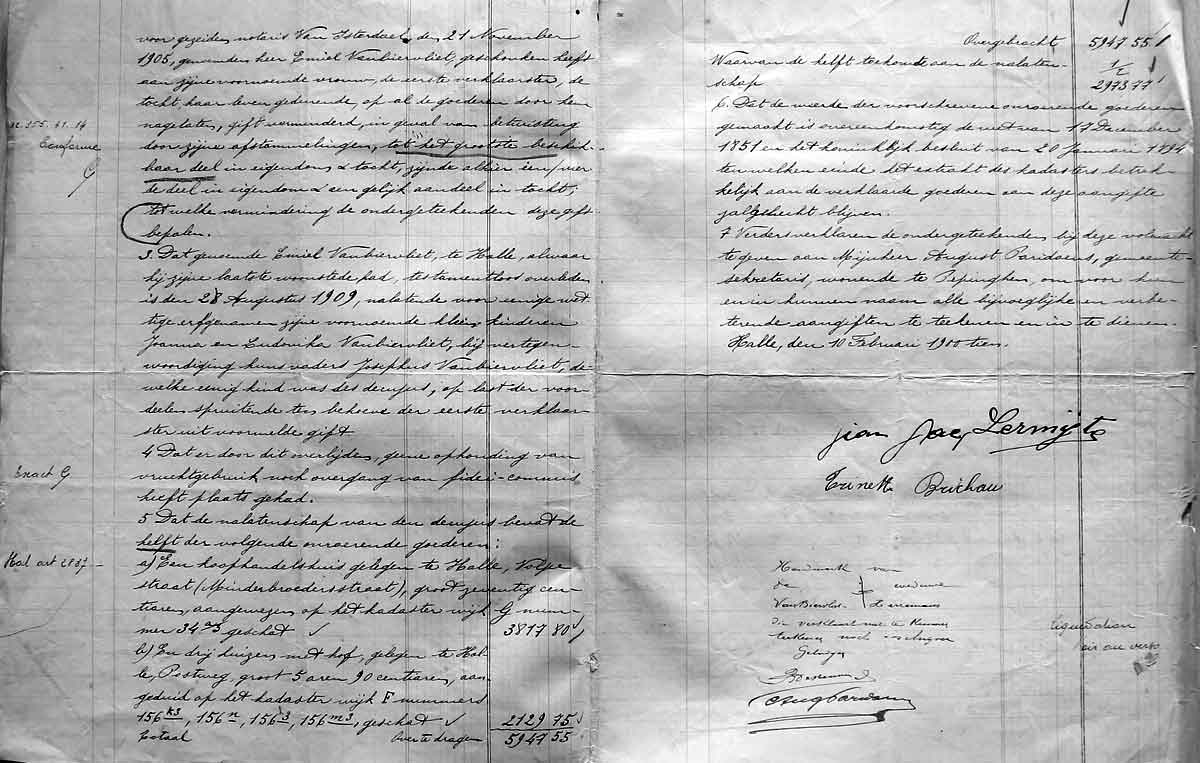 voor gezeiden notaris Van Isterdael, den 21 November
1905, genoemden heer Emiel Vanbiervliet, geschonken heeft
aan zijne voornoemde vrouw, de eerste verklaarster, de
tocht, haar leven gedurende, op al de goederen door hem
nagelaten, gift verminderd, in geval van betwisting
door zijne afstammelingen, tot het grootste beschik-
baar deel in eigendom & tocht, zijnde alhier een/vier
de deel in eigendom & een gelijk aandeel in tocht,
tot welke vermindering de ondergeteekenden deze gift
bepalen.
3. Dat genoemde Emiel Vanbiervliet, te Halle, alwaar
hij zijne laatste woonstede had, testamentloos overleden
is den 28 Augustus 1909, nalatende voor eenige wet
tige erfgenamen zijne voornoemde kleinkinderen
Joanna en Ludovika Vanbiervliet, bij vertegen-
woordiging huns vaders Josephus Vanbiervliet, de
welke eenig kind was des decujus, op last der voor-
deelen spruitende ten behoeve der eerste verklaar
ster uit voormelde gift
4 Dat er door dit overlijden, geene ophouding van
vruchtgebruik noch overgang van fideï-commis
heeft plaats gehad.
5 Dat de nalatenschap van den decujus bevat de
helft der volgende onroerende goederen:
a) Een koophandelshuis gelegen te Halle, Volpe
straat (Minderbroedersstraat), groot zeventig cen-
tiaren, aangewezen op het kadaster wijk G num-
mer 34 geschat 3817 80
b) En drij huizen met hof, gelegen te Hal
le, Postweg, groot 5 aren 90 centiaren, aan
geduid op het kadaster wijk F nummers
156, 156, 156, 156 m3, geschat 2129 75
Totaal Over te dragen 5947 55
Conforme
Exact G
Overgebracht 5947 55
Waarvan de helft toekomt aan de nalaten- 1/2
schap 2973 77
6. Dat de waarde der voorschrevene onroerende goederen
gemaakt is overeenkomstig de wet van 17 December
1851 en het koninklijk besluit van 20 Januari 1894
ten welken einde het extrakt des kadasters betrek-
kelijk aan de verklaarde goederen aan deze aangifte
zal gehecht blijven.
7 Verders verklaren de ondergeteekenden bij deze volmacht
te geven aan Mijnheer August Paridaens, gemeente-
sekretaris, wonende te Pepinghen, om voor hun
en in hunnen naam alle bijvoeglijke en verbe-
terende aangiften te teekenen en in te dienen.
Halle, den 10 Februari 1900 tien.
Handmerk van
de weduwe
Van Biervliet
die verklaart niet te kunnen
teekenen noch
Getuigen
liquidation